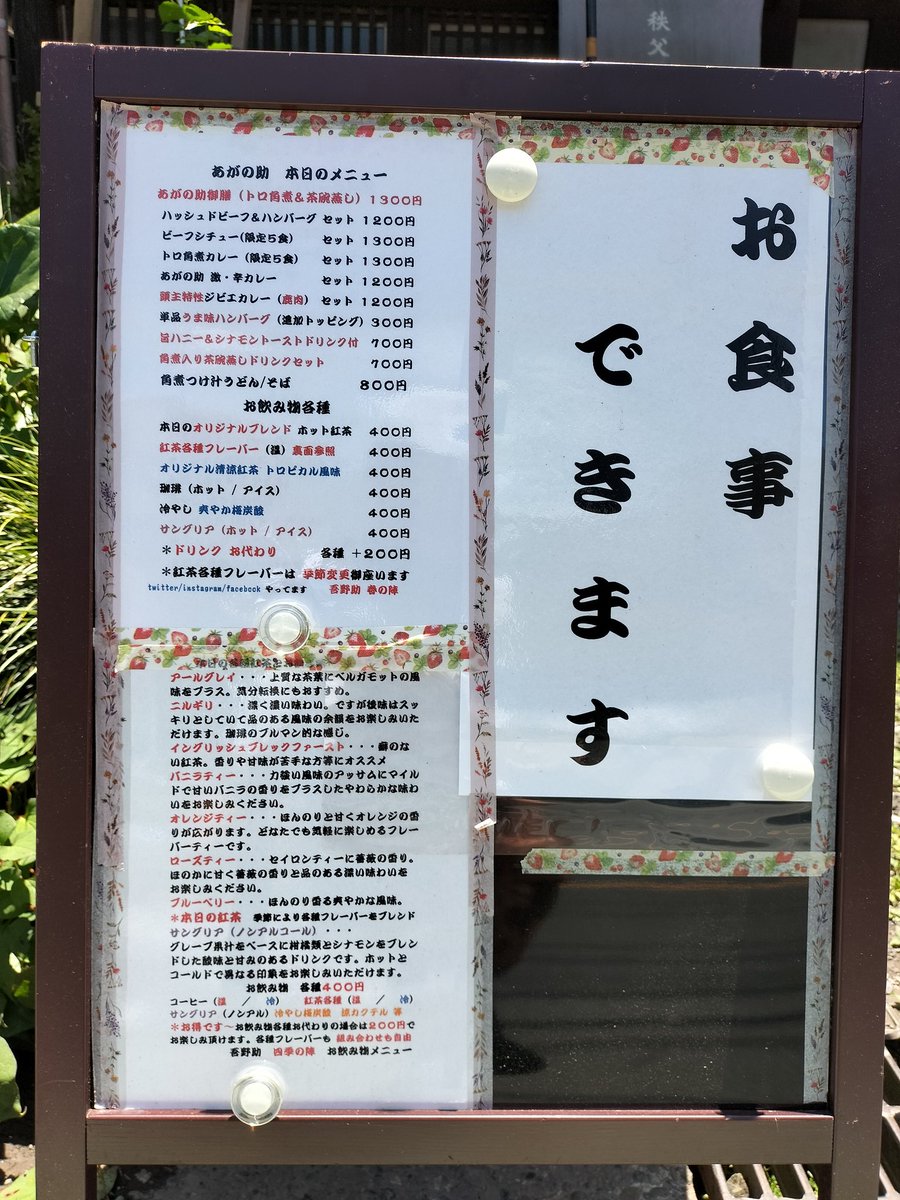 秩父
あがの助 本日のメニュー
あがの助御膳(トロ角煮&茶碗蒸し) 1300円
ハッシュドビーフ&ハンバーグ セット 1200円
ビーフシチュー(限定5食) セット 1300円
トロ角煮カレー(限定5食) セット 1300円
あがの助 激・辛カレー セット 1200円
頭主特性ジビエカレー(鹿肉) セット 1200円
単品うま味ハンバーグ(追加トッピング) 300円
旨ハニー&シナモントーストドリンク付 700円
角煮入り茶碗蒸しドリンクセット 700円
角煮つけ汁うどん/そば 800円
お飲み物各種
本日のオリジナルブレンド ホット紅茶 400円
紅茶各種フレーバー(温)裏面参照 400円
オリジナル清涼紅茶 トロピカル風味 400円
珈琲(ホット / アイス) 400円
冷やし 爽やか桜炭酸 400円
サングリア(ホット / アイス) 400円
*ドリンク お代わり 各種 +200円
*紅茶各種フレーバーは 季節変更御座います
twitter/instagram/facebook やってます 吾野助 春の陣
アールグレイ・・・上質な茶葉にベルガモットの風
味をプラス。気分転換にもおすすめ。
ニルギリ・・・深く濃い味わい。ですが後味はスッ
キリとしていて品のある風味の余韻をお楽しみいた
だけます。珈琲のブルマン的な感じ。
イングリッシュブレックファースト・・・癖のな
い紅茶。香りや甘味が苦手な方等にオススメ
バニラティー・・・力強い風味のアッサムにマイル
ドで甘いバニラの香りをプラスしたやわらかな味わ
いをお楽しみください。
オレンジティー・・・ほんのりと甘くオレンジの香
りが広がります。どなたでも気軽に楽しめるフレー
バーティーです。
ローズティー・・・セイロンティーに薔薇の香り。
ほのかに甘く薔薇の香りと品のある深い味わいを
お楽しみください。
ブルーベリー・・・ほんのり香る爽やかな風味。
*本日の紅茶 季節により各種フレーバーをブレンド
サングリア(ノンアルコール)・・・
グレープ果汁をベースに柑橘類とシナモンをブレン
ドした酸味と甘みのあるドリンクです。ホットと
コールドで異なる印象をお楽しみいただけます。
お飲み物 各種400円
コーヒー(温 / 冷) 紅茶各種(温 / 冷)
サングリア(ノンアル)冷やし桜炭酸 涼カクテル 等
*お得です～お飲み物各種お代わりの場合は200円で
お楽しみ頂けます。各種フレーバーも 組み合わせも自由
吾野助 四季の陣 お飲み物メニュー
お食事
できます